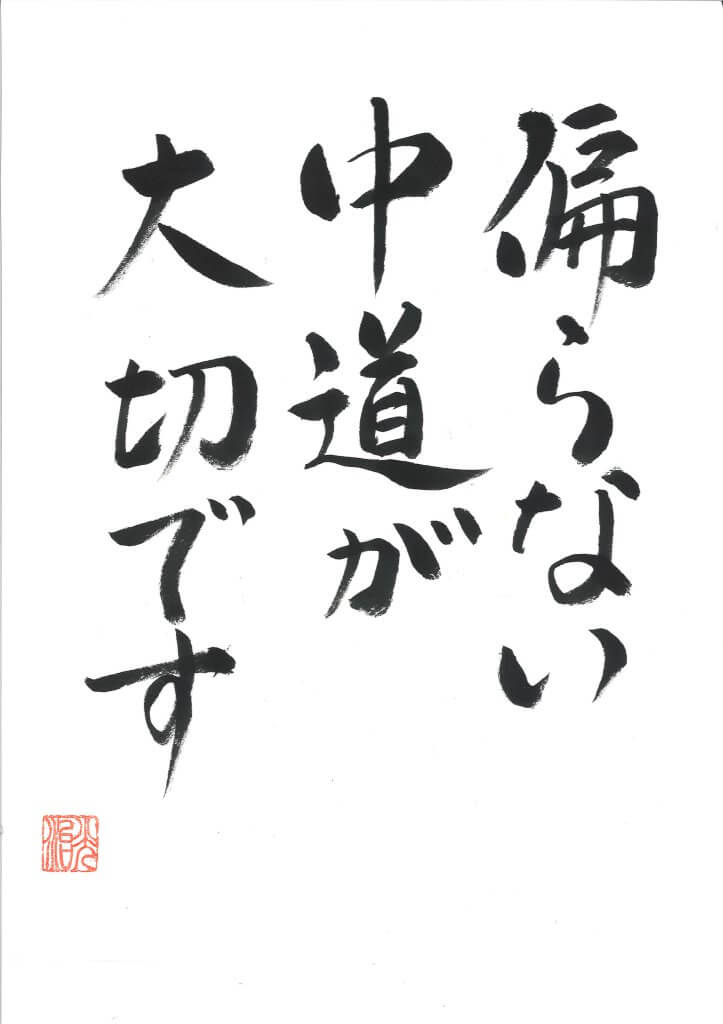 偏らない
中道が
大切です